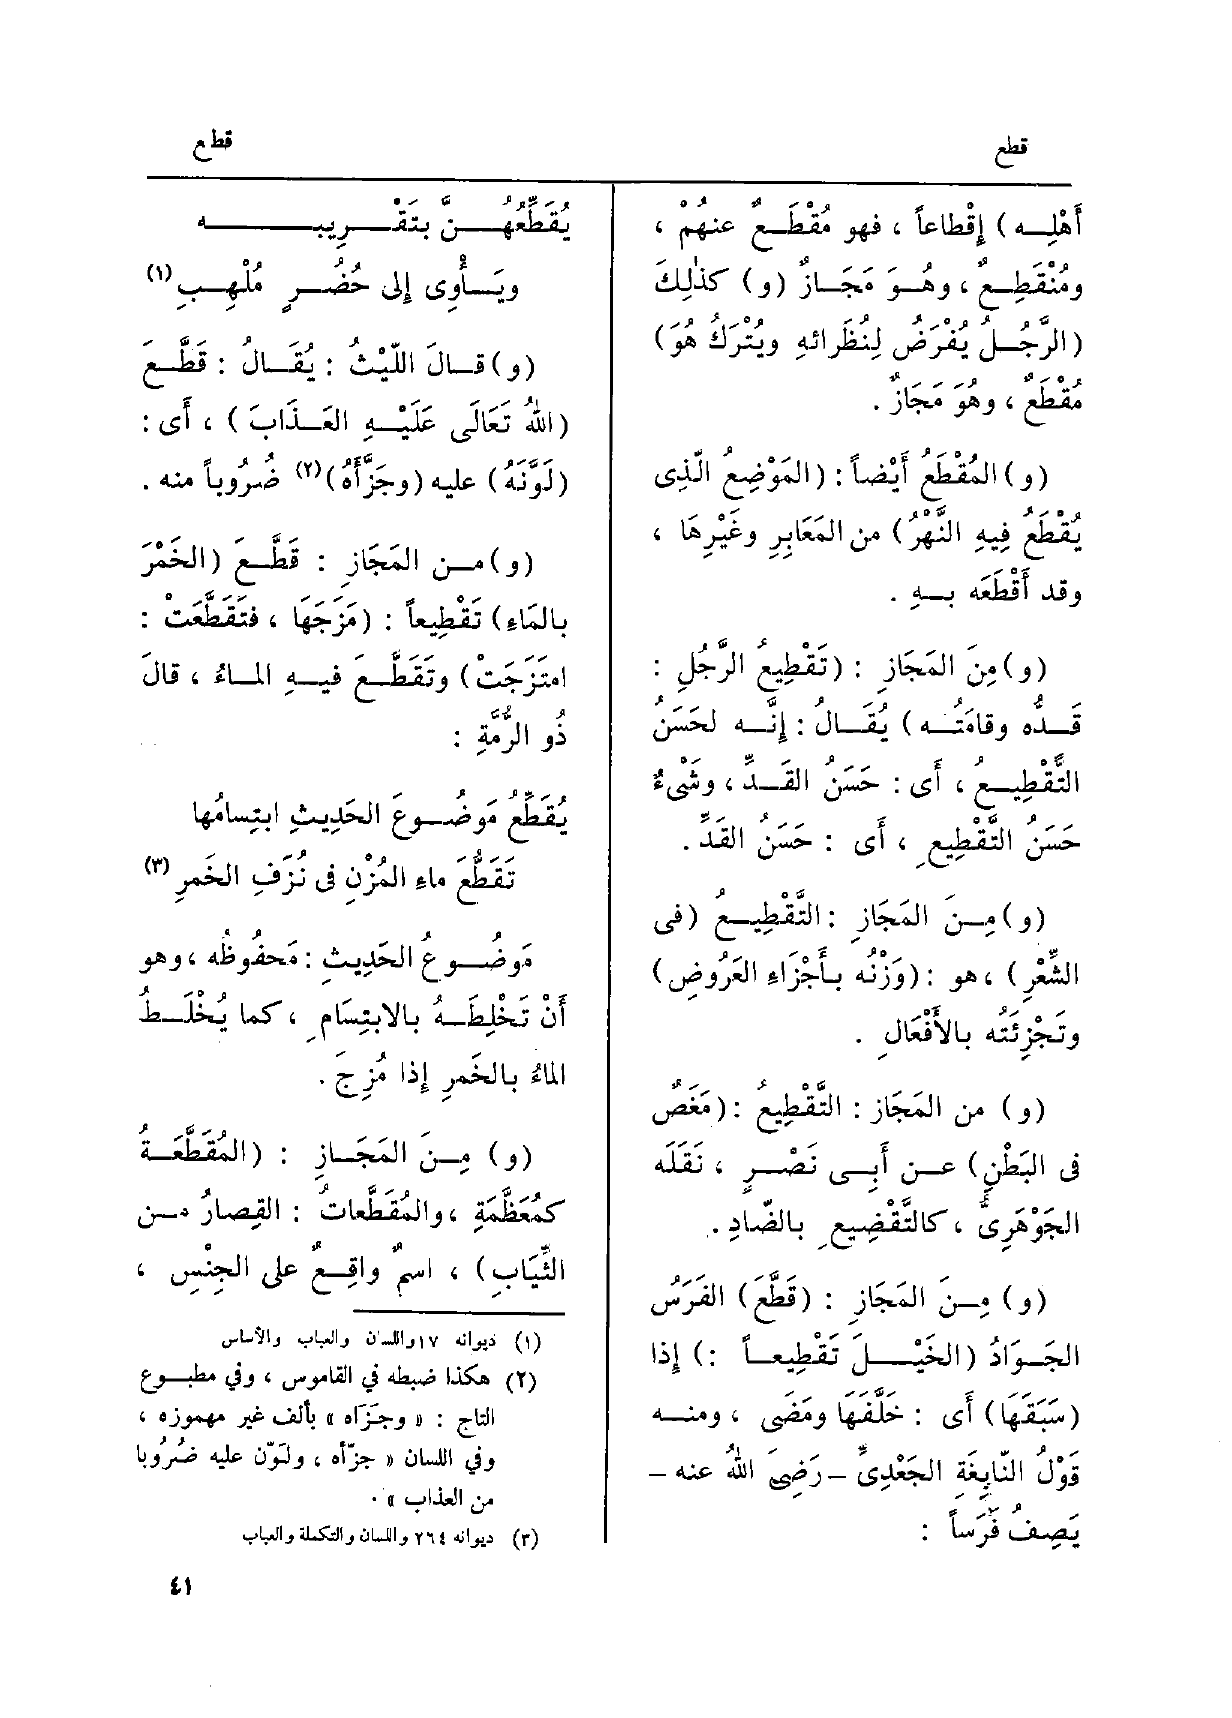 قطع
قطع
أَهْلِـه) إِقْطاعاً ، فهو مُقْطَـعٌ عنهُمْ ،
ومُنْقَطِـعٌ ، وهُـوَ مَجَـازٌ (و) كذٰلِكَ
(الرَّجُـلُ يُفْرَضُ لِنُظَرائهِ ويُتْرَكُ هُوَ)
مُقْطَعٌ ، وهُوَ مَجَازٌ .
(و) المُقْطَعُ أَيْضاً : (المَوْضِعُ الَّذِى
يُقْطَعُ فِيهِ النَّهْرُ) من المَعَابِرِ وغَيْرِهَا ،
وقد أَقْطَعَه بـهِ .
(و) مِنَ المَجَازِ : (تَقْطِيعُ الرَّجُلِ :
قَـدُّه وقامَتُـه) يُقَـالُ : إِنَّـه لحَسَنُ
التَّقْطِيـعُ ، أَى : حَسَنُ القَـدِّ ، وشَىْءٌ
حَسَنُ التَّقْطِيعِ ، أَى : حَسَنُ القَدِّ .
(و) مِـنَ المَجَازِ : التَّقْطِيـعُ (فى
الشِّعْرِ) ، هو : (وَزْنُه بـأَجْزَاءِ العَرُوضِ)
وتَجْزِئَتُه بالأَفْعَالِ .
(و) من المَجَازِ : التَّقْطِيعُ : (مَغَصٌ
فى البَطْنِ) عـن أَبِـى نَصْـرٍ ، نَقَلَه
الجَوْهَرِىُّ ، كالتَّقْضِيعِ بالضّادِ .
(و) مِـنَ المَجَازِ : (قَطَّعَ) الفَرَسُ
الجَـوَادُ (الخَيْـلَ تَقْطِيعـاً :) إِذا
(سَبَقَهَا) أَى : خَلَّفَهَا ومَضَى ، ومنـه
قَوْلُ النّابِغَةِ الجَعْدِىِّ - رَضِىَ اللهُ عنه -
يَصِفُ فَرَساً :
يُقَطِّعُهُـنَّ بتَقْـرِيبِـه
ويَـأْوِى إِلى حُضْـرٍ مُلْهِـبِ (١)
(و) قـالَ اللّيْثُ : يُقَـالُ : قَطَّـعَ
(اللهُ تَعَالَى عَلَيْـهِ العَـذَابَ) ، أَى :
(لَوَّنَهُ) عليه (وجَزَّأَهُ) (٢) ضُرُوباً منه .
(و) مـن المَجَازِ : قَطَّـعَ (الخَمْرَ
بالمَاءِ) تَقْطِيعاً : (مَزَجَهَا ، فتَقَطَّعَتْ :
امتَزَجَتْ) وتَقَطَّـعَ فيـهِ المـاءُ ، قالَ
ذُو الرُّمَّةِ :
يُقَطِّعُ مَوضُـوعَ الحَدِيثِ ابتِسامُها
تَقَطُّعَ ماءِ المُزْنِ فى نُزَفِ الخَمرِ (٣)
مَوضُـوعُ الحَدِيثِ : مَحفُوظُه ، وهو
أَنْ تَخْلِطَـهُ بالابتِسَامِ ، كما يُخْلَـطُ
الماءُ بالخَمرِ إِذا مُزِجَ .
(و) مِـنَ المَجَـازِ : (المُقَطَّعَـةُ
كمُعَظَّمَةٍ ، والمُقَطَّعاتُ : القِصارُ مـن
الثِّيَابِ) ، اسمٌ واقِـعٌ على الجِنْسِ ،
(١) ديوانه ١٧ واللسان والعباب والأساس
(٢) هكذا ضبطه في القاموس ، وفي مطبـوع
التاج : « وجَزَاه » بألف غير مهموزه ،
وفي اللسان « جزّأه ، ولَوّن عليه ضُرُوبا
من العذاب » .
(٣) ديوانه ٢٦٤ واللسان والتكملة والعباب
٤١